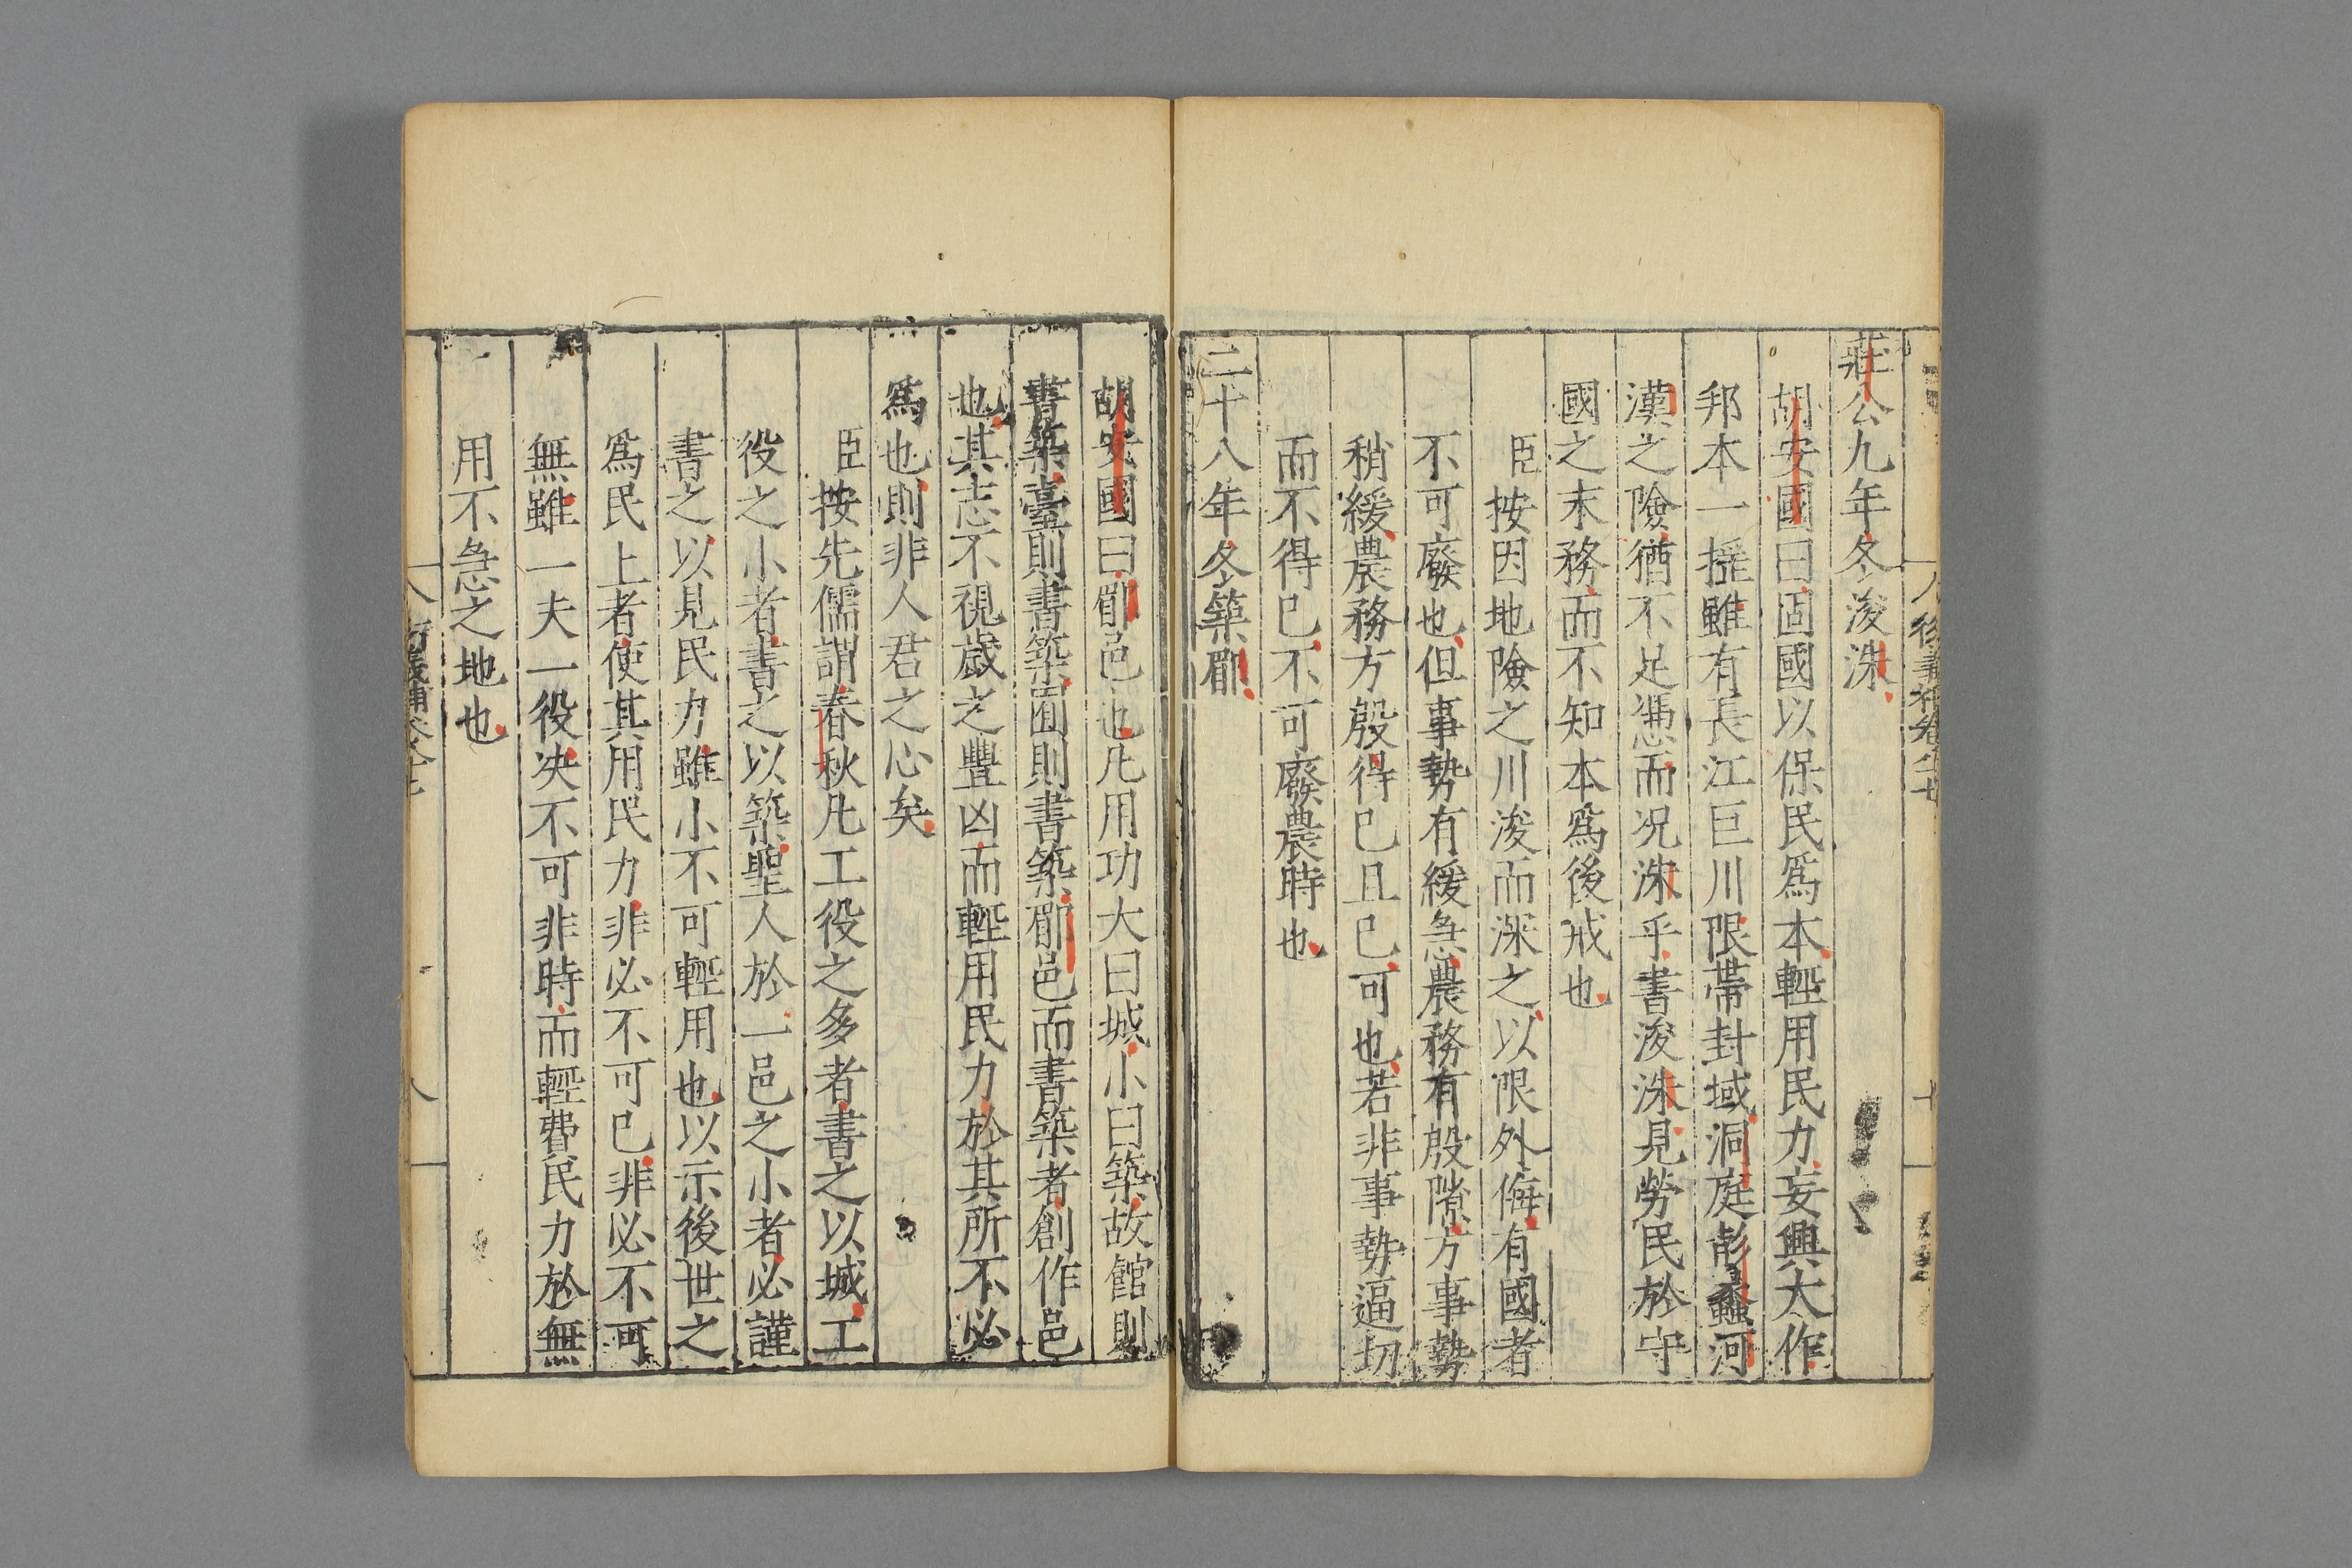 莊公九年冬浚洙
胡安國曰固國以保民爲本輕用民力妄興大作
邦本一揺雖有長江巨川限帶封域洞庭彭蠡河
漢之險猶不足憑而况洙乎書浚洙見勞民於守
國之末務而不知本爲後戒也
臣按因地險之川浚而深之以限外侮有國者
不可廢也但事勢有緩急農務有殷隙方事勢
稍緩農務方殷得已且已可也若非事勢逼切
而不得已不可廢農時也
二十八年冬築郿
胡安國曰郿邑也凡用功大曰城小曰築故館則
書築臺則書築囿則書築郿邑而書築者創作邑
也其志不視歲之豐凶而輕用民力於其所不必
爲也則非人君之心矣
臣按先儒謂春秋凡工役之多者書之以城工
役之小者書之以築聖人於一邑之小者必謹
書之以見民力雖小不可輕用也以示後世之
爲民上者使其用民力非必不可已非必不可
無雖一夫一役决不可非時而輕費民力於無
用不急之地也